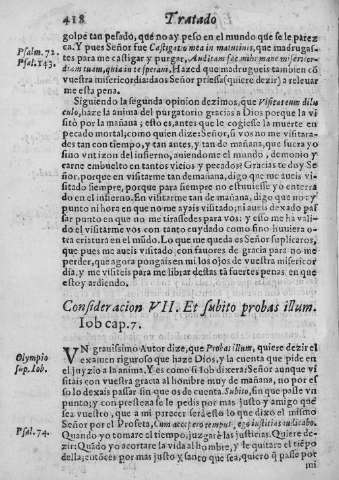 418 Tratado
golpe tan pesado, que no ay peso en el mundo que se le parez
ca. Y pues Señor fue Castigatio mea in matutinis, que madrugas-
Psalm. 72.
tes para me castigar y purgar, Auditam fac mihi mane misericor-
Psal. 143.
diam tuam, quia in te speraui. Hazed que madrugueis tambien cō
vuestra misericordia: daos Señor priessa (quiere dezir) a releuar
me esta pena.
Siguiendo la segunda opinion dezimos, que Visitas eum dilu
culo, haze la anima del purgatorio gracias a Dios porque la vi
sitò por la mañana; esto es, antes que le cogiesse la muerte en
pecado mortal; como quien dize: Señor, si vos no me visitara-
des tan con tiempo, y tan antes, y tan de mañana, que fuera yo
sino vn tizon del infierno, uiendome el mundo, demonio, y
carne embuelto en tantos vicios y pecados? Gracias te doy Se
ñor, porque en visitarme tan de mañana, digo que me aueis vi-
sitado siempre, porque para siempre no estuuiesse yo enterra
do en el infierno. En visitarme tan de mañana, digo que no ay
punto ni hora en que no me ayais visitado; ni aueis dexado pas
sar punto en que no me tirassedes para vos; y esso me ha vali-
do el visitarme vos con tanto cuydado como sino huuiera o-
tra criatura en el mūdo. Lo que me queda es Señor suplicaros,
que pues me aueis visitado, con fauores de gracia para no me
perder, que agora pongais en mi los ojos de vuestra misericor
dia, y me visiteis para me librar destas tā fuertes penas en que
estoy ardiendo.
Consideracion VII. Et subito probas illum.
Iob cap. 7.
VN grauissimo Autor dize, que Probas illum, quiere dezir el
Olympio
sup. Iob.
examen riguroso que haze Dios, y la cuenta que pide en
el juyzio a la anima. Y es como si Iob dixera: Señor aunque vi
sitais con vuestra gracia al hombre muy de mañana, no por es
so lo dexais passar sin que os de cuenta. Subito, sin que passe vn
punto; y con presteza se le pedis por mas justo y amigo que
sea vuestro, que a mi parecer serà esto lo que dixo el mismo
Señor por el Profeta, Cum accepero tempus, ego iustitias iudicabo.
Psal. 74.
Quando yo tomare el tiempo, juzgarè las justicias. Quiere de-
zir: Quādo yo acortare la vida al hombre, y le quitare el tiēpo
della; entōces por mas justo y santo que sea, quiero q̄ passe por
mi